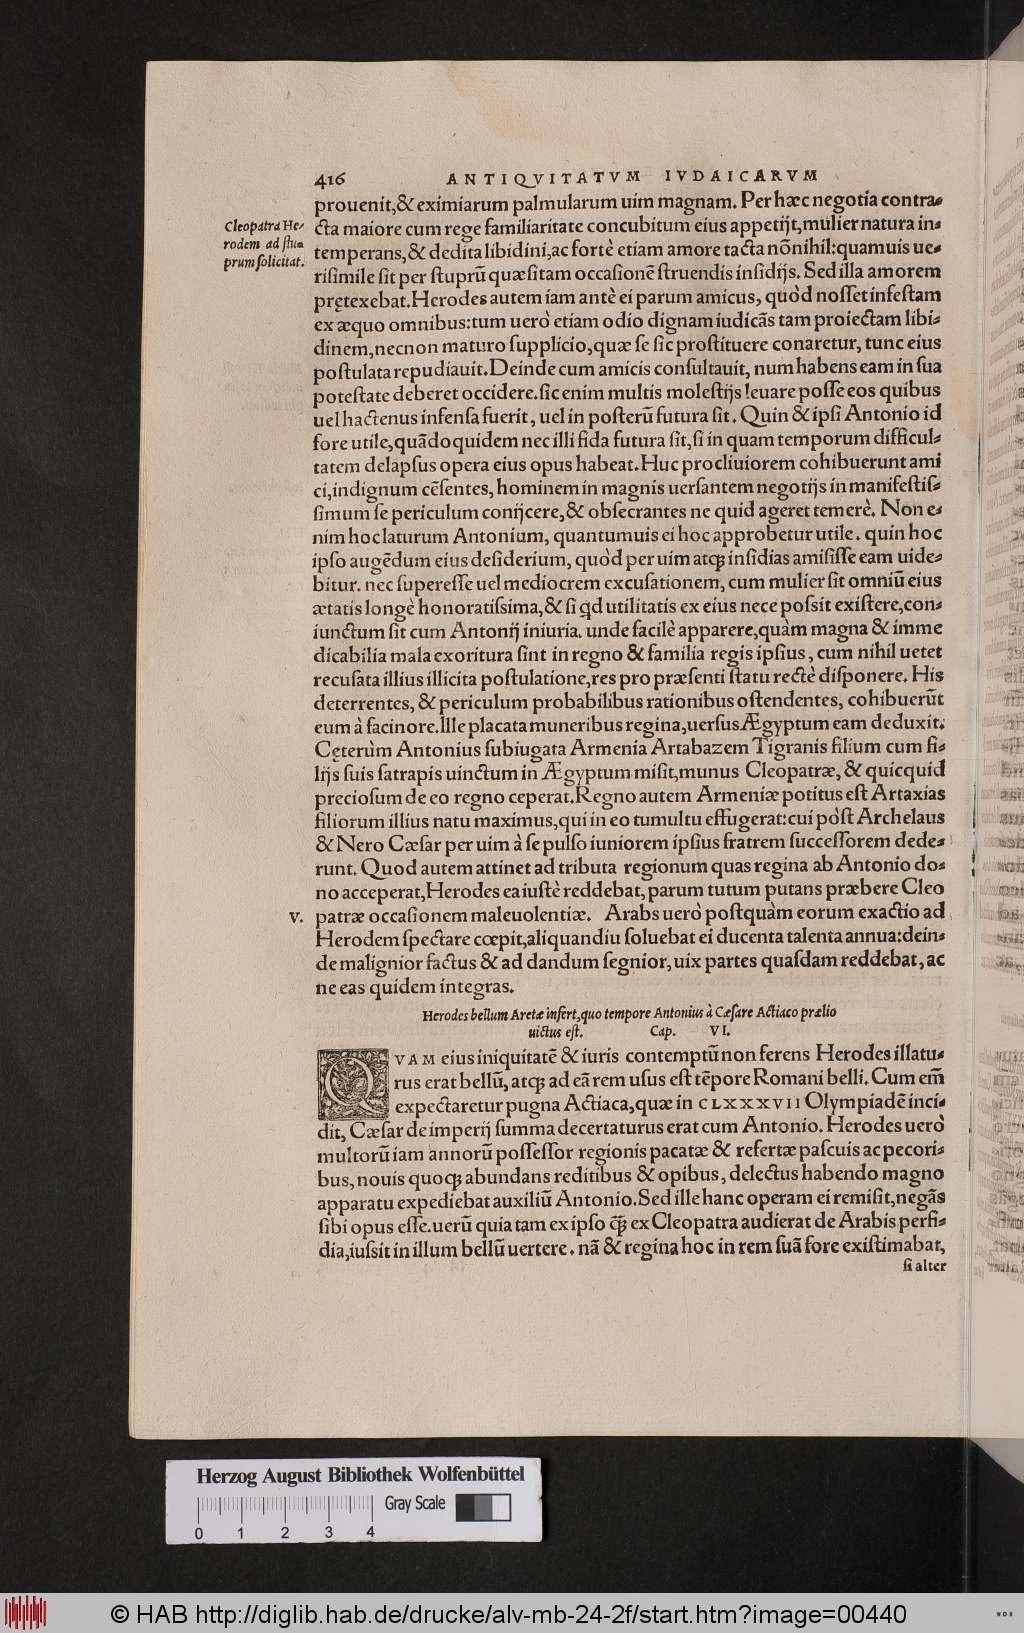 416 ANTIQVITATVM IVDAICARVM
prouenit,& eximiarum palmularum uim magnam. Per hæc negotia contra-
Cleopatra He-
rodem ad stu-
prum solicitat.
cta maiore cum rege familiaritate concubitum eius appetijt,mulier natura in-
temperans,& dedita libidini,ac fortè etiam amore tacta nõnihil:quamuis ue-
risimile sit per stuprũ quæsitam occasionẽ struendis insidijs. Sed illa amorem
prętexebat.Herodes autem iam antè ei parum amicus, quòd nosset infestam
ex æquo omnibus:tum uerò etiam odio dignam iudicãs tam proiectam libi-
dinem,necnon maturo supplicio,quæ se sic prostituere conaretur, tunc eius
postulata repudiauit.Deinde cum amicis consultauit, num habens eam in sua
potestate deberet occidere.sic enim multis molestijs leuare posse eos quibus
uel hactenus infensa fuerit, uel in posterũ futura sit. Quin & ipsi Antonio id
fore utile,quãdoquidem nec illi fida futura sit,si in quam temporum difficul-
tatem delapsus opera eius opus habeat.Huc procliuiorem cohibuerunt ami
ci,indignum cẽsentes, hominem in magnis uersantem negotijs in manifestis-
simum se periculum conijcere,& obsecrantes ne quid ageret temerè. Non e-
nim hoc laturum Antonium, quantumuis ei hoc approbetur utile. quin hoc
ipso augẽdum eius desiderium, quòd per uim atq; insidias amisisse eam uide-
bitur. nec superesse uel mediocrem excusationem, cum mulier sit omniũ eius
ætatis longè honoratissima,& si qd utilitatis ex eius nece possit existere,con-
iunctum sit cum Antonij iniuria. unde facilè apparere,quàm magna & imme
dicabilia mala exoritura sint in regno & familia regis ipsius, cum nihil uetet
recusata illius illicita postulatione,res pro præsenti statu rectè disponere. His
deterrentes, & periculum probabilibus rationibus ostendentes, cohibuerũt
eum à facinore.Ille placata muneribus regina,uersus Ægyptum eam deduxit.
Cęterùm Antonius subiugata Armenia Artabazem Tigranis filium cum fi-
lijs suis satrapis uinctum in Ægyptum misit,munus Cleopatræ, & quicquid
preciosum de eo regno ceperat.Regno autem Armeniæ potitus est Artaxias
filiorum illius natu maximus,qui in eo tumultu effugerat:cui pòst Archelaus
& Nero Cæsar per uim à se pulso iuniorem ipsius fratrem successorem dede-
runt. Quod autem attinet ad tributa regionum quas regina ab Antonio do-
no acceperat,Herodes ea iustè reddebat, parum tutum putans præbere Cleo
V. patræ occasionem maleuolentiæ. Arabs uerò postquàm eorum exactio ad
Herodem spectare cœpit,aliquandiu soluebat ei ducenta talenta annua:dein-
de malignior factus & ad dandum segnior, uix partes quasdam reddebat, ac
ne eas quidem integras.
Herodes bellum Aretæ infert,quo tempore Antonius à Cæsare Actiaco prælio
uictus est. Cap. VI.
QVAM eius iniquitatẽ & iuris contemptũ non ferens Herodes illatu-
rus erat bellũ, atq; ad eã rem usus est tẽpore Romani belli. Cum em̃
expectaretur pugna Actiaca,quæ in CLXXXVII Olympiadẽ inci-
dit, Cæsar de imperij summa decertaturus erat cum Antonio. Herodes uerò
multorũ iam annorũ possessor regionis pacatæ & refertæ pascuis ac pecori-
bus, nouis quoq; abundans reditibus & opibus, delectus habendo magno
apparatu expediebat auxiliũ Antonio.Sed ille hanc operam ei remisit,negãs
sibi opus esse.uerũ quia tam ex ipso q̃; ex Cleopatra audierat de Arabis perfi-
dia,iussit in illum bellũ uertere. nã & regina hoc in rem suã fore existimabat,
si alter
Herzog August Bibliothek Wolfenbüttel
Gray Scale
0 1 2 3 4
© HAB http://diglib.hab.de/drucke/alv-mb-24-2f/start.htm?image=00440